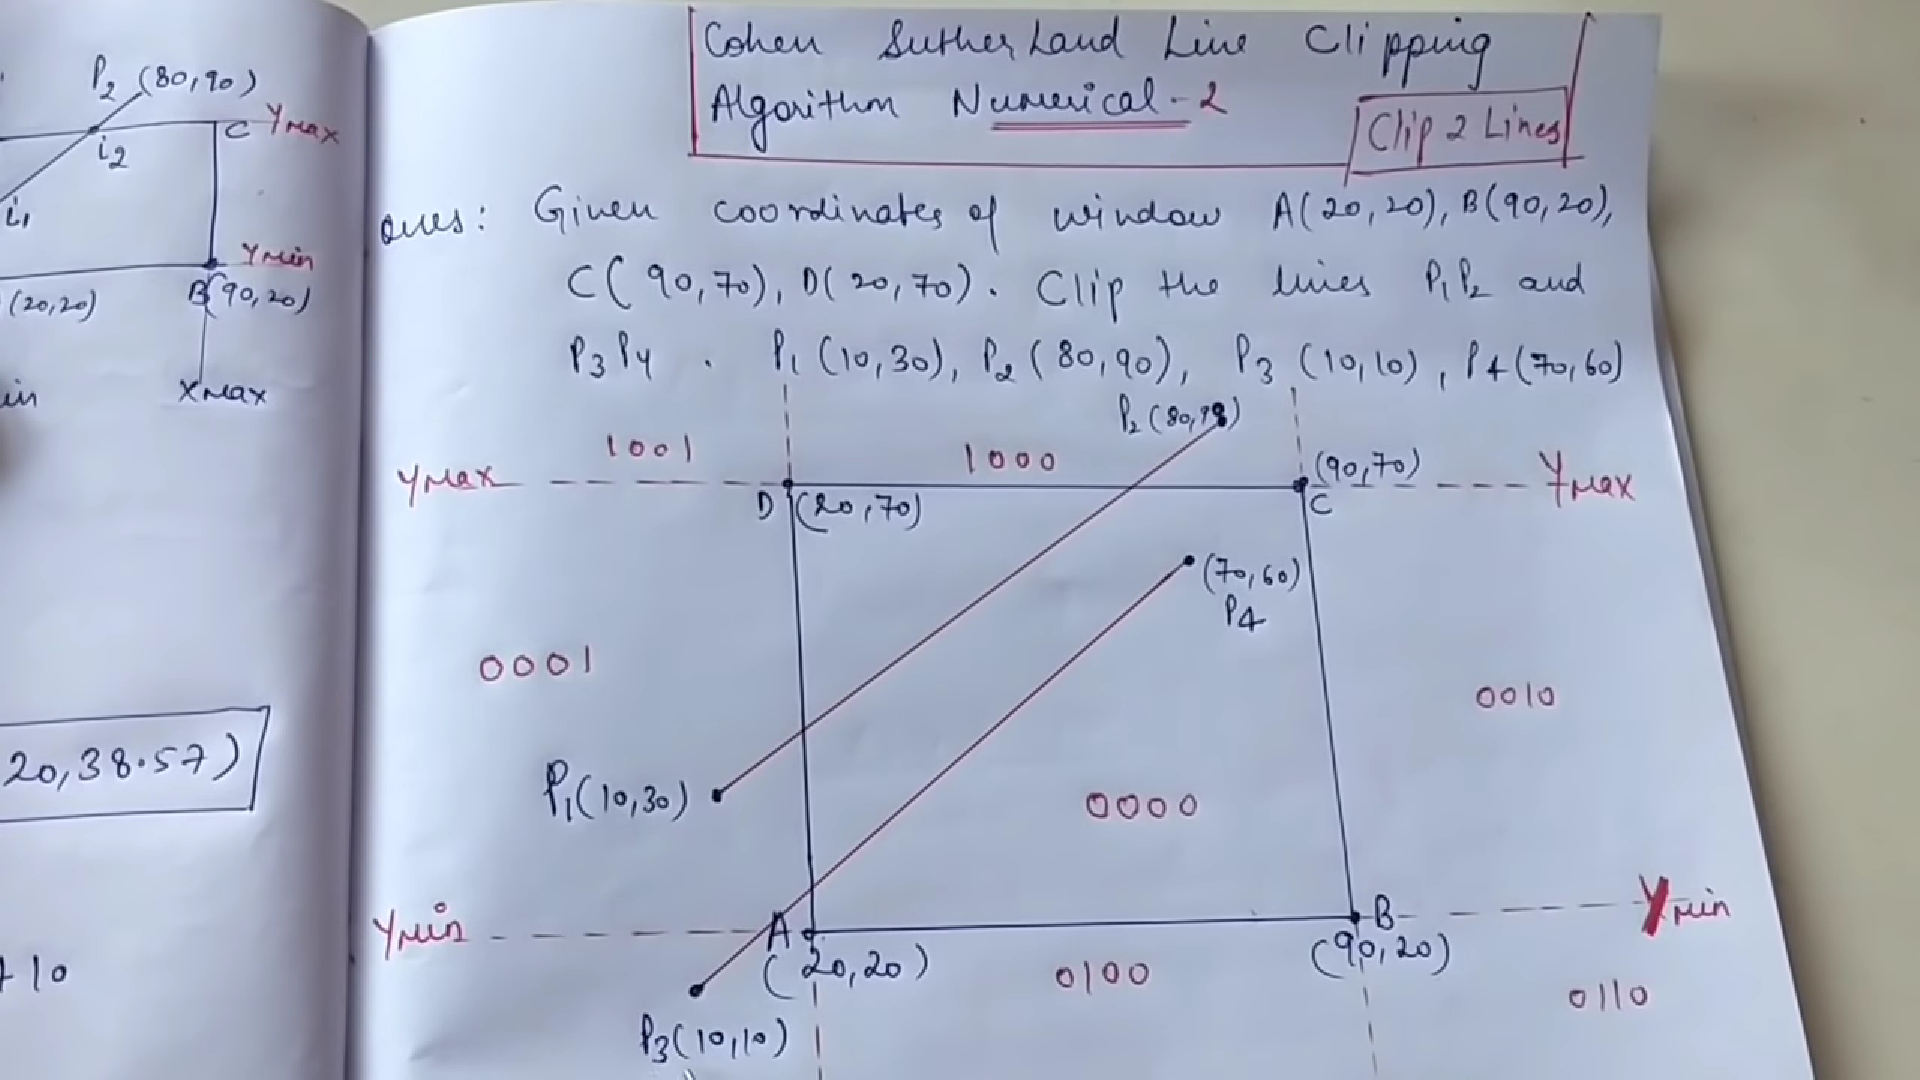 P2 (80,90)
C YMax
i2
i1
YMin
(20,20)
B(90,20)
in
XMax
20,38.57)
+10
Cohen Sutherland Line Clipping
Algorithm Numerical-2
Clip 2 Lines
Ques: Given coordinates of window A(20,20), B(90,20),
C(90,70), D(20,70). Clip the lines P1P2 and
P3P4 . P1(10,30), P2(80,90), P3(10,10), P4(70,60)
P2(80,90)
1001
1000
(90,70)
YMax
YMax
D (20,70)
C
(70,60)
P4
0001
0010
P1(10,30)
0000
YMin
A
B
YMin
(20,20)
(90,20)
0100
0110
P3(10,10)